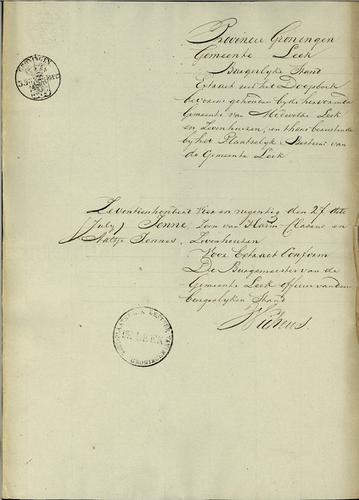 Provincie Groningen
Gemeente Leek
Burgerlijke Stand
Extract uit het Doopboek
bevorens gehouden bij de hervormde
Gemeente van Midwolde Leek
en Leenhuizen, en thans berustende
bij het Plaatselijk Bestuur van
de Gemeente Leek
GRONINGEN
Zeventienhonderd Vier en negentig den 27 dito
(July) Jonne, Zoon van Harm Clasens en
Aaltje Jannes, Zevenhuizen
Voor Extract Conform
De Burgemeester van de
Gemeente Leek officier van den
burgerlijken Stand
LEEK
GRONINGEN